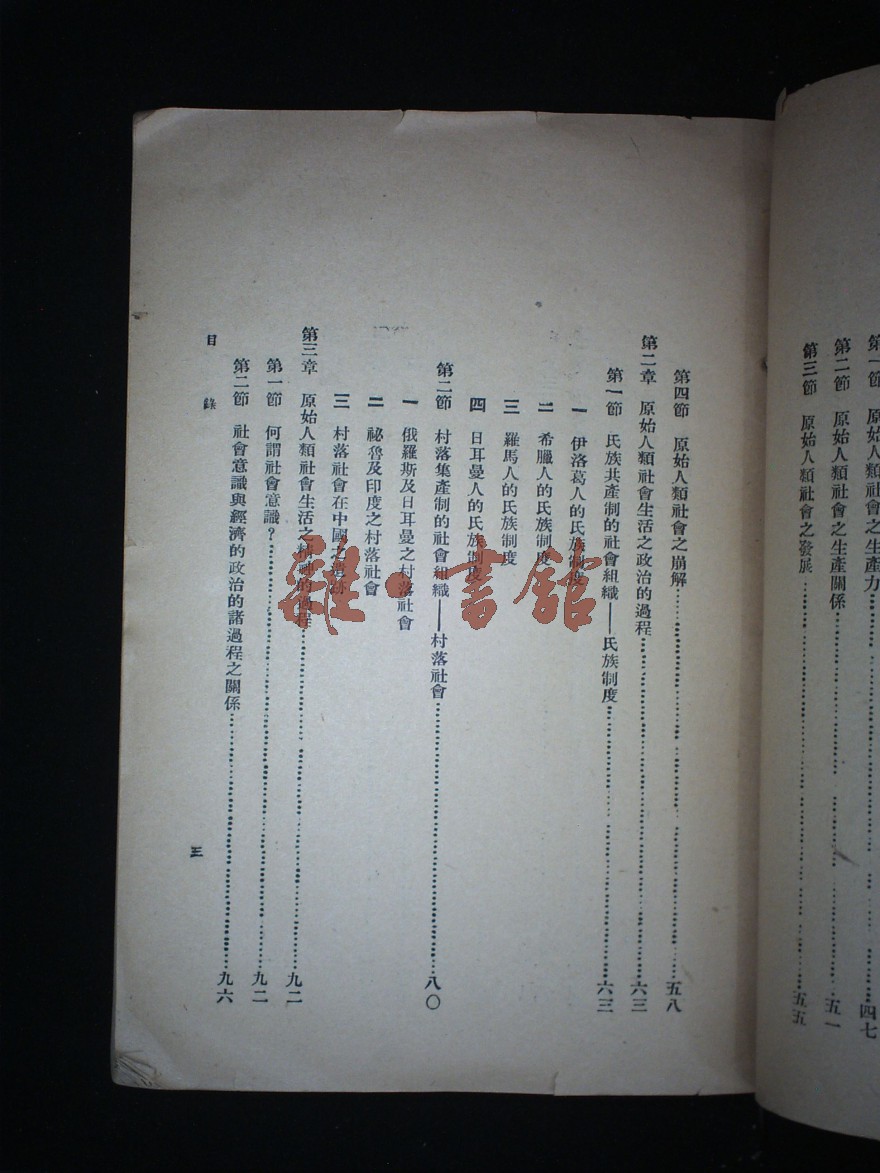 第一節　原始人類社會之生產力……四七
第二節　原始人類社會之生產關係……五一
第三節　原始人類社會之發展……五五
第四節　原始人類社會之崩解……五八
第二章　原始人類社會生活之政治的過程……六三
第一節　民族共產制的社會組織——民族制度……六三
一　伊洛葛人的民族制度
二　希臘人的民族制度
三　羅馬人的民族制度
四　日耳曼人的民族制度
第二節　村落集產制的社會組織——村落社會……八〇
一　俄羅斯及日耳曼之村落社會
二　祕魯及印度之村落社會
三　村落社會在中國之遺跡
第三章　原始人類社會生活之精神的過程……九二
第一節　何謂社會意識？……九二
第二節　社會意識與經濟的政治的諸過程之關係……九六
目錄
三
雜·書館